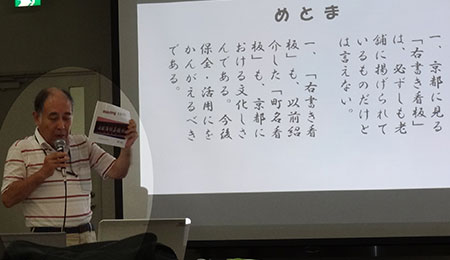 めとま
一、京都に見る
「右書き看板」
は、必ずしも老
舗に掲げられて
いるものだけと
は言えない。
一、「右書き看
板」も、以前紹
介した「町名看
板」も、京都に
おける文化しさ
んである。今後
保金・活用にを
かんがえるべき
である。